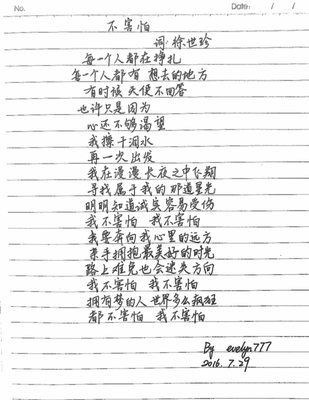 No.
Date: / /
不害怕
词:徐世珍
每一个人都在挣扎
每一个人都有 想去的地方
有时候 天使不回答
也许只是因为
心还不够渴望
我擦干泪水
再一次出发
我在漫漫长夜之中飞翔
寻找属于我的那道星光
明明知道诚实容易受伤
我不害怕 我不害怕
我要奔向我心里的远方
亲手拥抱最美好的时光
路上难免也会迷失方向
我不害怕 我不害怕
拥有梦的人 世界多么疯狂
都不害怕 我不害怕
By evelyn777
2016.7.29